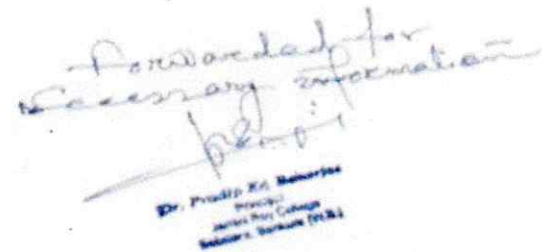 Forwarded for
Necessary information
Dr. Pradip Kr. Banerjee
Principal
Jamini Roy College
Beliatore, Bankura (W.B.)